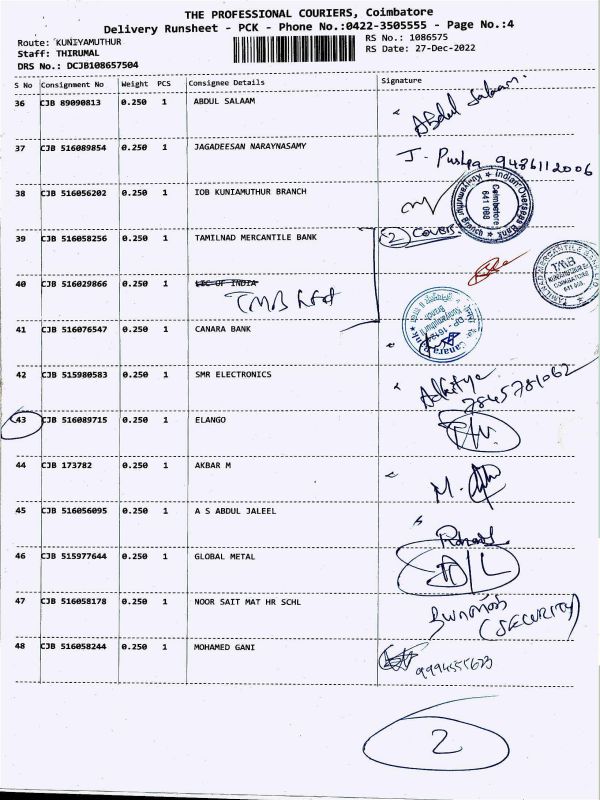 THE PROFESSIONAL COURIERS, Coimbatore
Delivery Runsheet - PCK - Phone No.:0422-3505555 - Page No.:4
Route: KUNIYAMUTHUR
RS No.: 1086575
Staff: THIRUMAL
RS Date: 27-Dec-2022
DRS No.: DCJB108657504
S No Consignment No Weight PCS Consignee Details Signature
36 CJB 89090813 0.250 1 ABDUL SALAAM Abdul Salaam.
37 CJB 516089854 0.250 1 JAGADEESAN NARAYNASAMY J. Pushpa 9486112006
38 CJB 516056202 0.250 1 IOB KUNIAMUTHUR BRANCH
Indian Overseas Bank
Kuniyamuthur Branch
Coimbatore
641 008
39 CJB 516058256 0.250 1 TAMILNAD MERCANTILE BANK (2) COVERS
TAMILNAD MERCANTILE BANK LTD
TMB
COIMBATORE
40 CJB 516029866 0.250 1 LIC OF INDIA
TMB
41 CJB 516076547 0.250 1 CANARA BANK
Canara Bank
Kuniyamuthur Branch
42 CJB 515980583 0.250 1 SMR ELECTRONICS
7845781062
43 CJB 516089715 0.250 1 ELANGO
44 CJB 173782 0.250 1 AKBAR M M.
45 CJB 516056095 0.250 1 A S ABDUL JALEEL
46 CJB 515977644 0.250 1 GLOBAL METAL D/L
47 CJB 516058178 0.250 1 NOOR SAIT MAT HR SCHL
(SECURITY)
48 CJB 516058244 0.250 1 MOHAMED GANI 9994555673
2